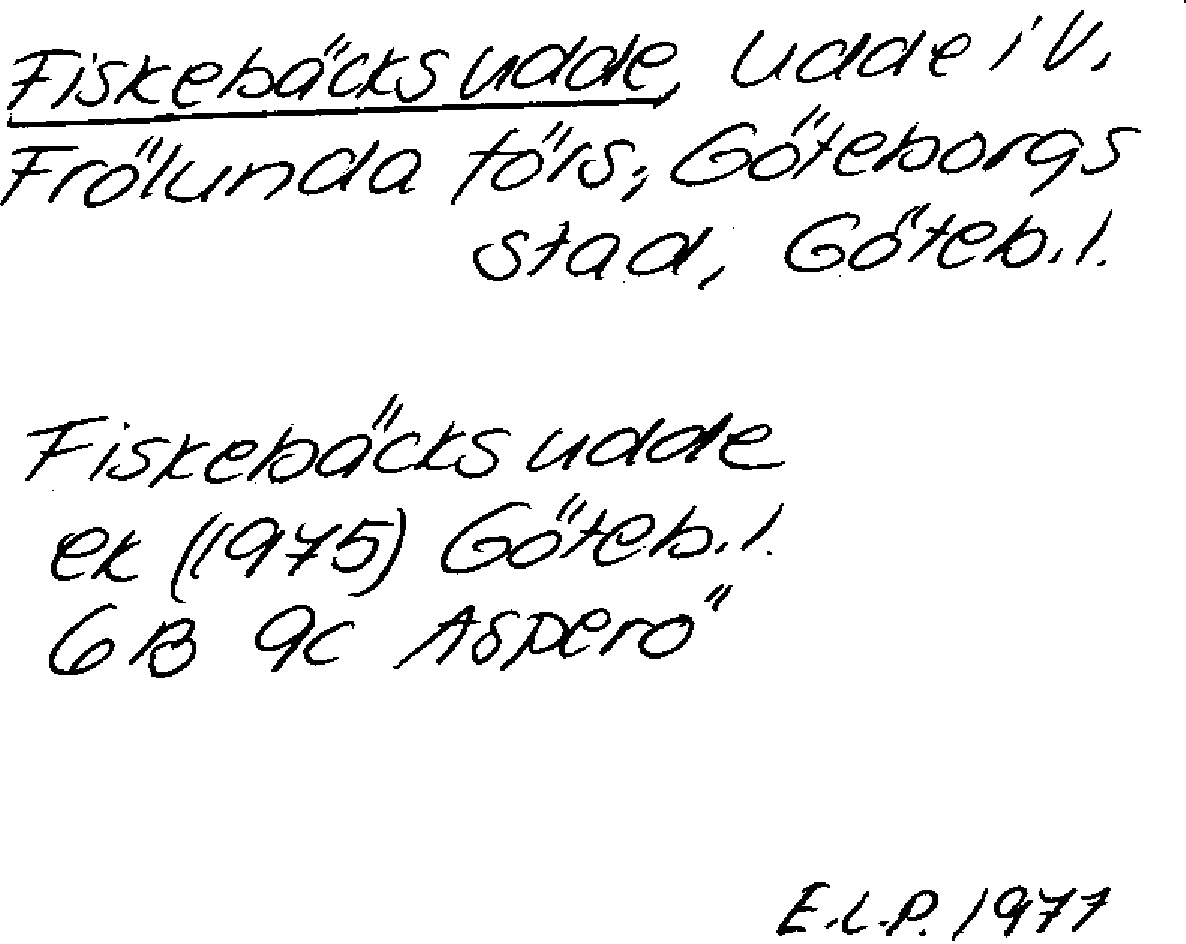 Fiskebäcks udde, udde i V.
Frölunda förs., Göteborgs
stad, Göteb. l.
Fiskebäcks udde
ek (1975) Göteb. l.
6B 9c Asperö
E.L.P. 1977